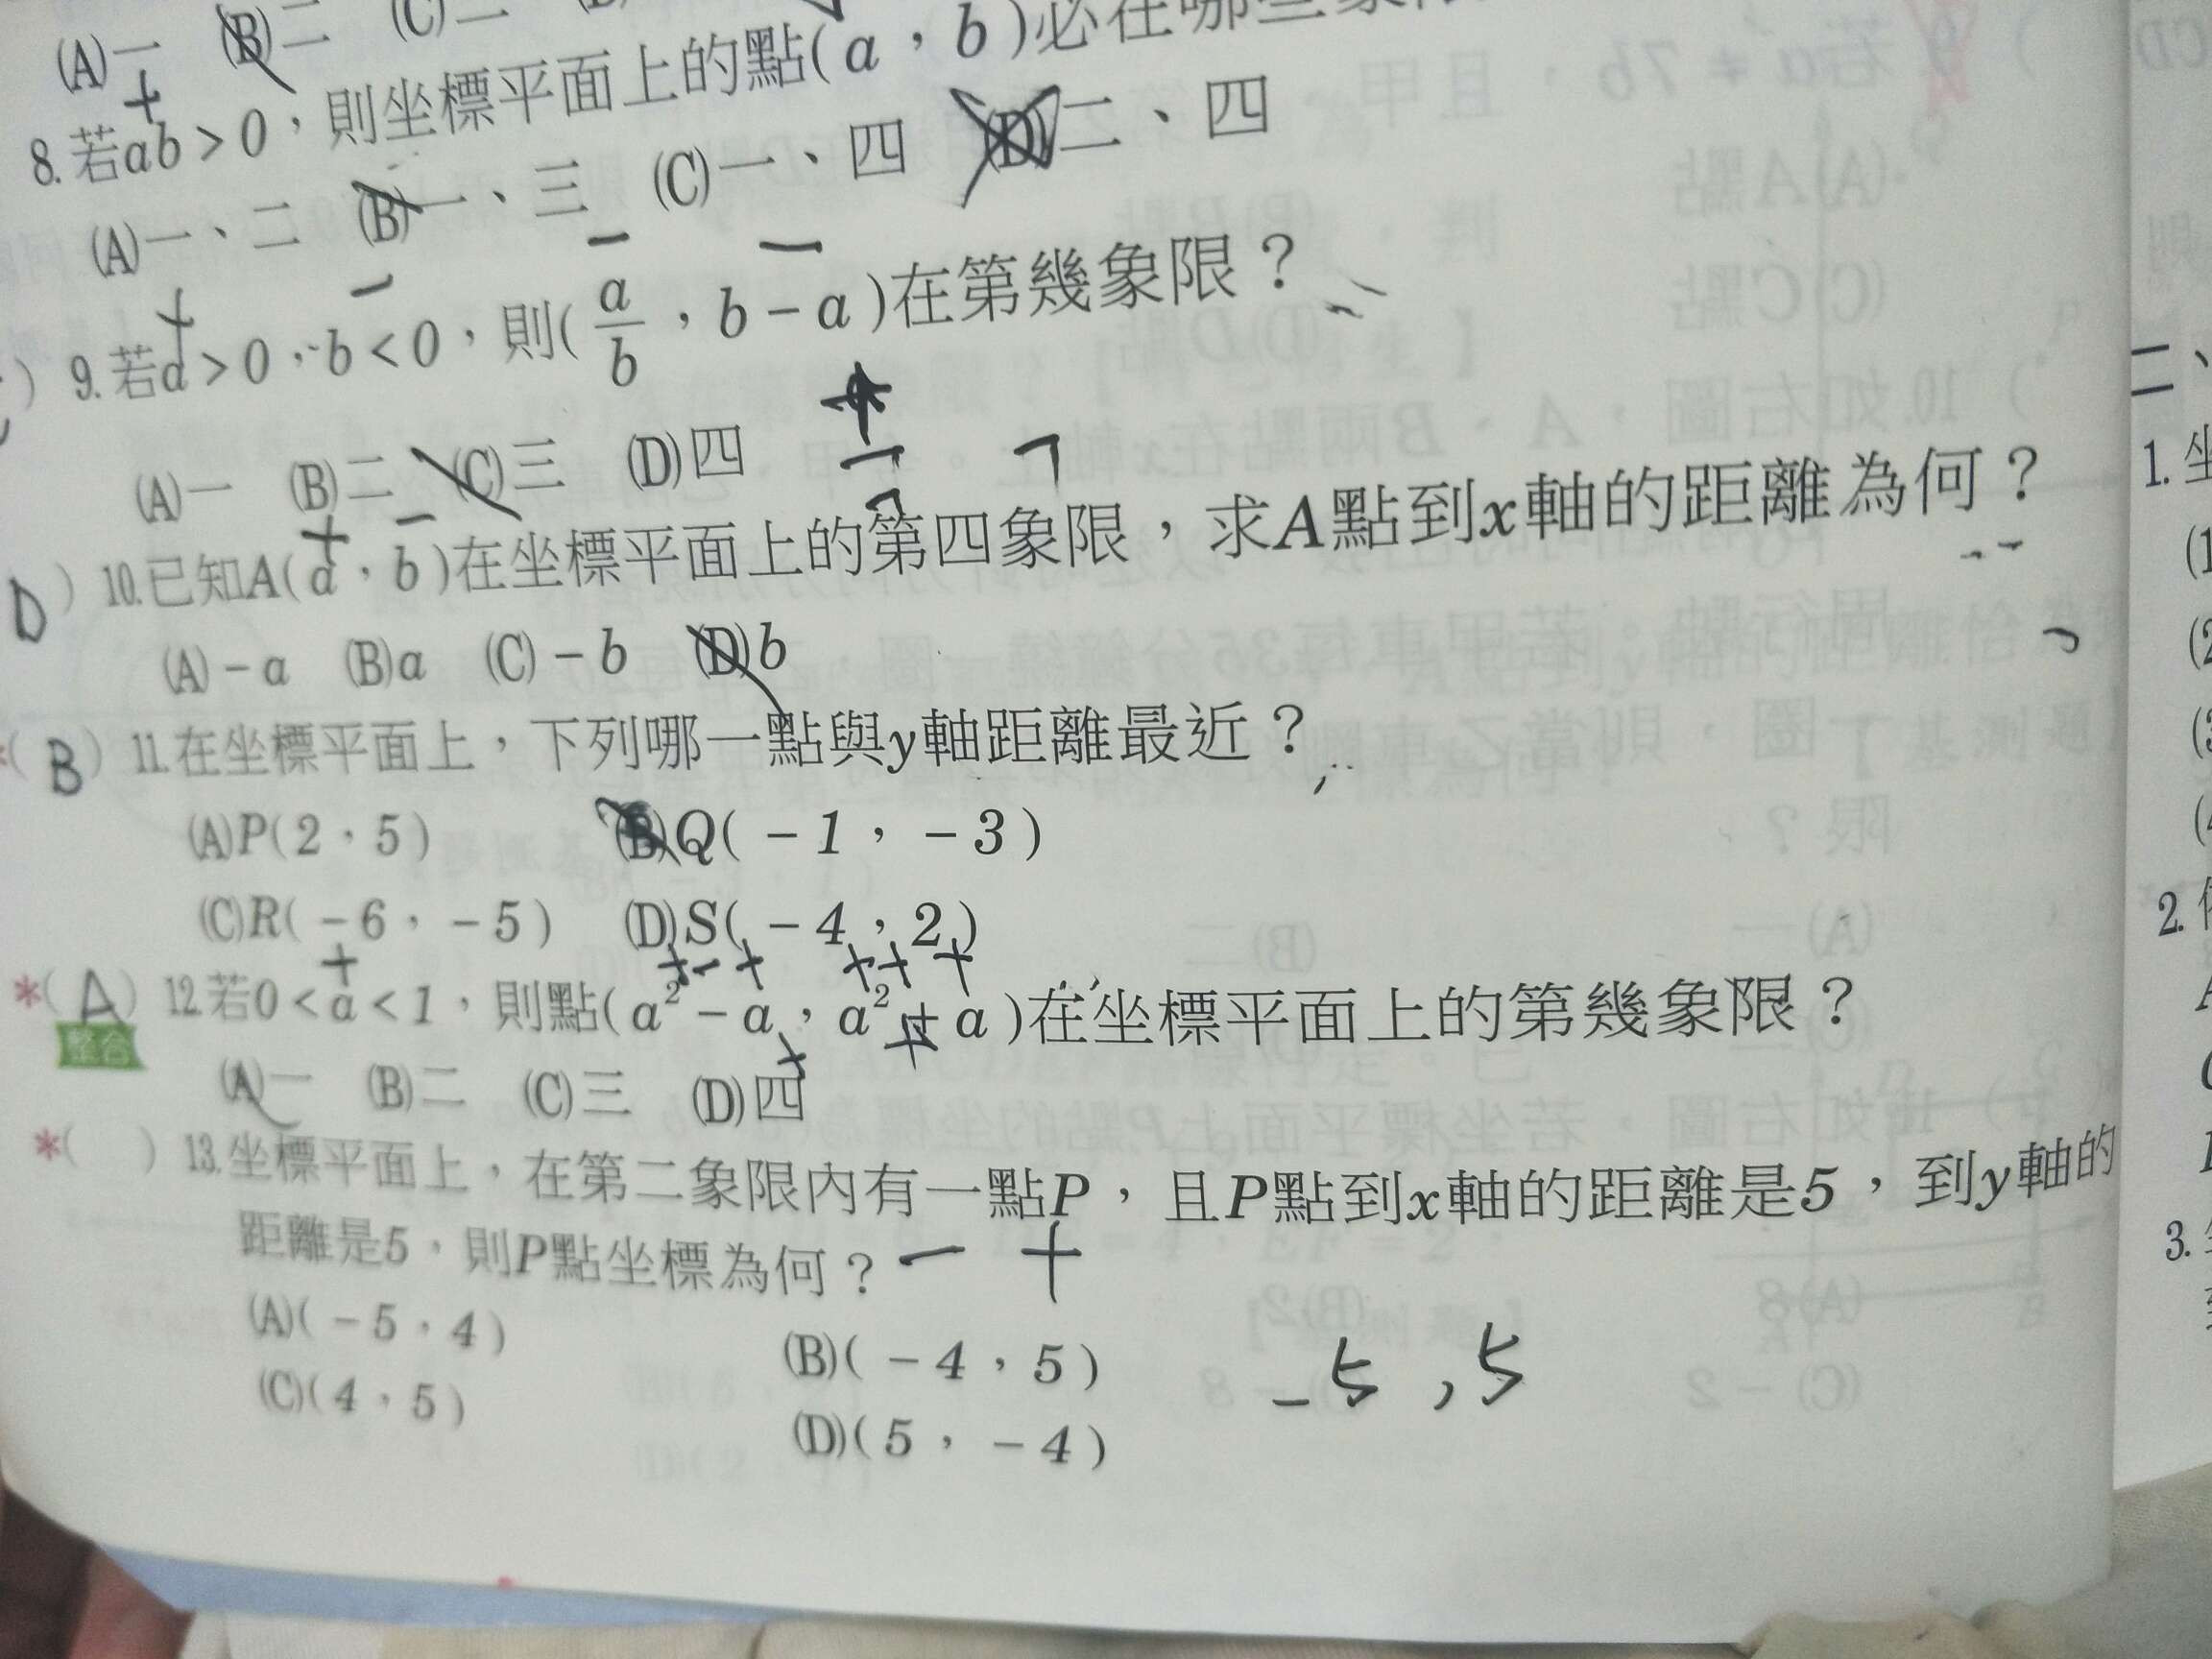 (A)一 (B)二 (C)
8.若ab>0，則坐標平面上的點(a，b)必在哪些象限
(A)一、二 (B)一、三 (C)一、四 (D)二、四
9.若a>0，b<0，則(a/b，b－a)在第幾象限？
(A)一 (B)二 (C)三 (D)四
D ) 10.已知A(a，b)在坐標平面上的第四象限，求A點到x軸的距離為何？
(A)－a (B)a (C)－b (D)b
*( B ) 11.在坐標平面上，下列哪一點與y軸距離最近？
(A)P(2，5) (B)Q(－1，－3)
(C)R(－6，－5) (D)S(－4，2)
*( A ) 12.若0<a<1，則點(a²－a，a²＋a)在坐標平面上的第幾象限？
整合
(A)一 (B)二 (C)三 (D)四
*( ) 13.坐標平面上，在第二象限內有一點P，且P點到x軸的距離是5，到y軸的
距離是5，則P點坐標為何？ － ＋
(A)(－5，4) (B)(－4，5)
(C)(4，5) (D)(5，－4)
-5 , 5
二、
1.坐
(1
(2
(3
(4
2.
3.